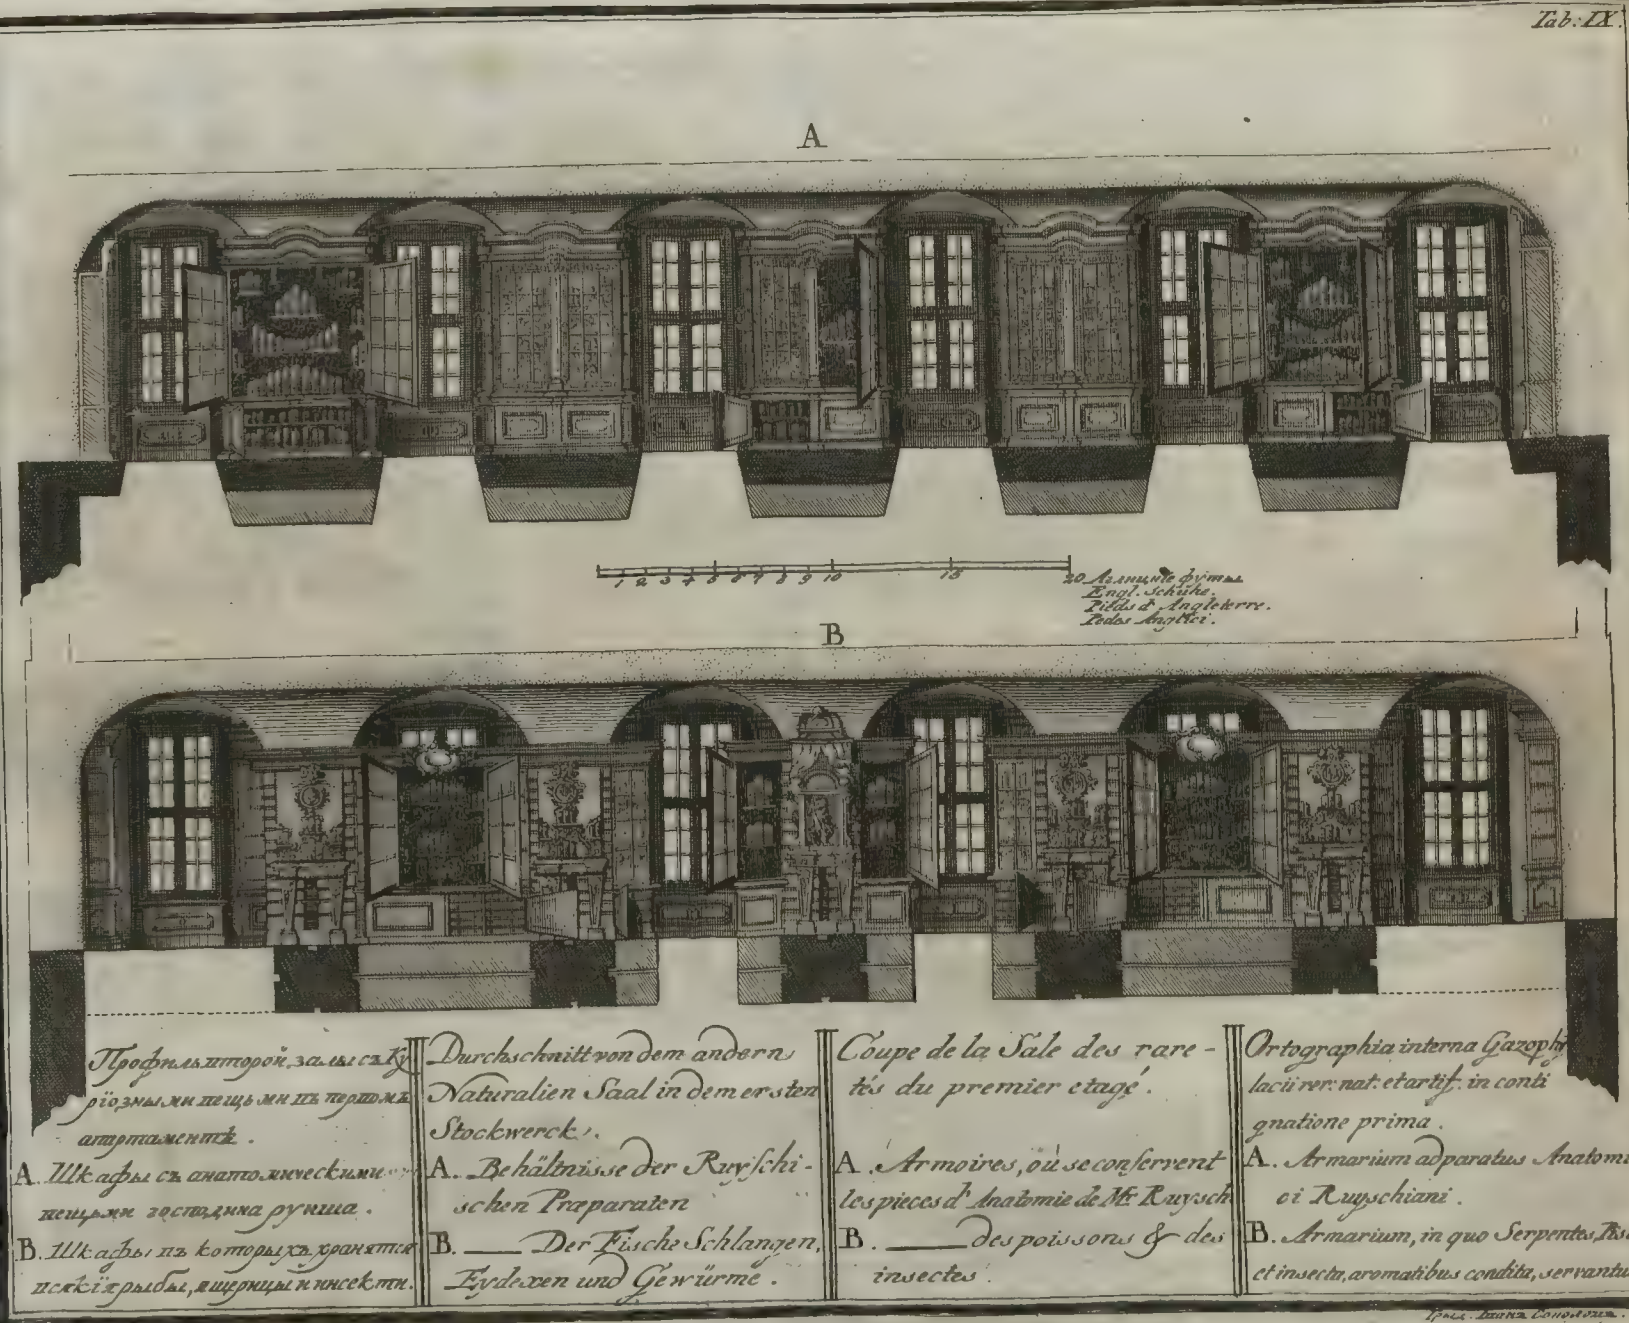 Tab: IX.
A
1 2 3 4 5 6 7 8 9 10 15 20 Аглинскіе футы
Engl. Schühe.
Pieds d'Angleterre.
Pedes Anglici.
B
Профиль второй залы съ Ку
ріозными вещьми въ первомъ
апартаментѣ.
A. Шкафы съ анатомическими
вещьми господина руиша.
B. Шкафы въ которыхъ хранятся
всякія рыбы, ящерицы и инсекти.
Durchschnitt von dem andern
Naturalien Saal in dem ersten
Stockwerck.
A. Behältnisse der Ruyschi-
schen Præparaten
B. ___ Der Fische Schlangen,
Eydexen und Gewürme.
Coupe de la Sale des rare-
tés du premier etagé.
A. Armoires, où se conservent
les pieces d'Anatomie de Mr. Ruysch
B. ___ des poissons & des
insectes.
Ortographia interna Gazophy
lacii rer: nat: et artif: in conti
gnatione prima.
A. Armarium adparatus Anatomi
ci Ruyschiani.
B. Armarium, in quo Serpentes, Pisc
et insecta, aromatibus condita, servantu
Грыд. Іванъ Соколовъ.